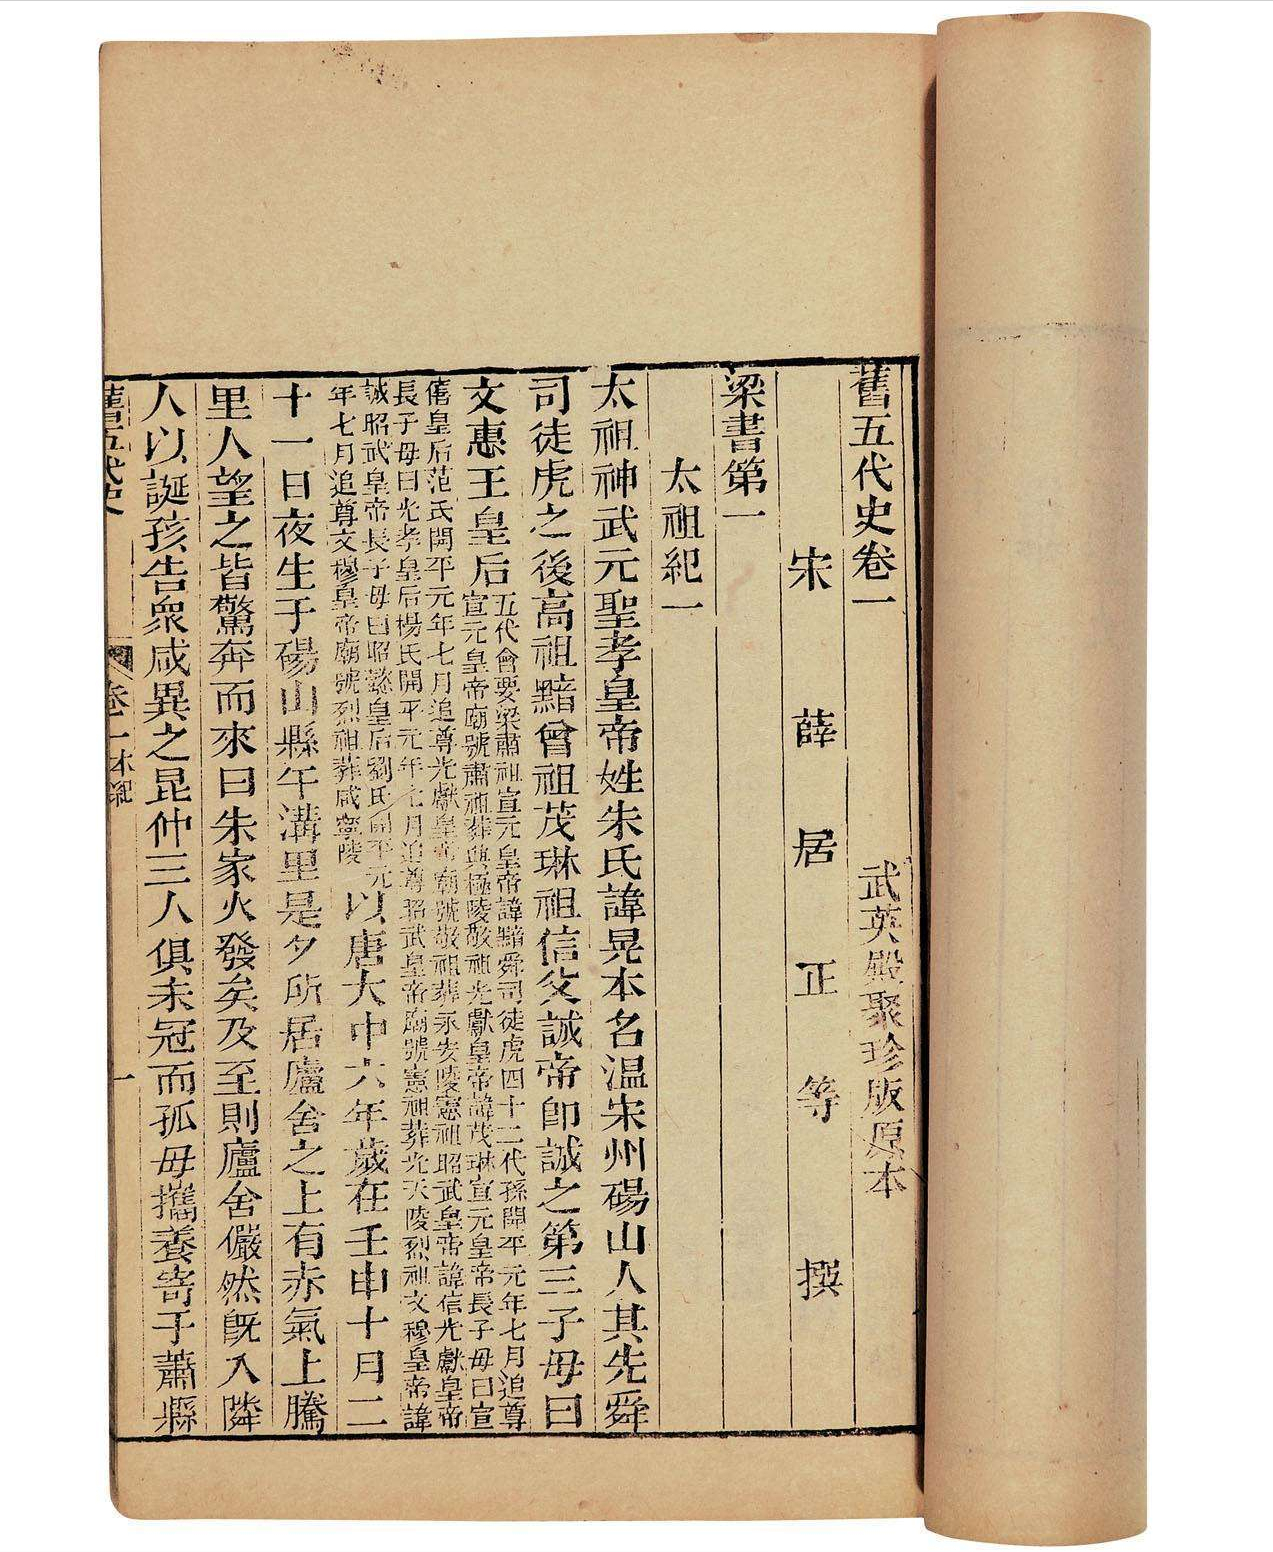 舊五代史卷一
武英殿聚珍版原本
宋薛居正等撰
梁書第一
太祖紀一
太祖神武元聖孝皇帝姓朱氏諱晃本名温宋州碭山人其先舜
司徒虎之後高祖黯曾祖茂琳祖信父誠帝即誠之第三子母曰
文惠王皇后
五代會要梁肅祖宣元皇帝諱黯舜司徒虎四十二代孫開平元年七月追尊
宣元皇帝廟號肅祖葬興極陵敬祖光獻皇帝諱茂琳宣元皇帝長子母曰宣
僖皇后范氏開平元年七月追尊光獻皇帝廟號敬祖葬永安陵憲祖昭武皇帝諱信光獻皇帝
長子母曰光孝皇后楊氏開平元年七月追尊昭武皇帝廟號憲祖葬光天陵烈祖文穆皇帝諱
誠昭武皇帝長子母曰昭懿皇后劉氏開平元
年七月追尊文穆皇帝廟號烈祖葬咸寧陵
以唐大中六年歲在壬申十月二
十一日夜生于碭山縣午溝里是夕所居廬舍之上有赤氣上騰
里人望之皆驚奔而來曰朱家火發矣及至則廬舍儼然既入隣
人以誕孩告衆咸異之昆仲三人俱未冠而孤母攜養寄于蕭縣
舊五代史
卷一本紀
一